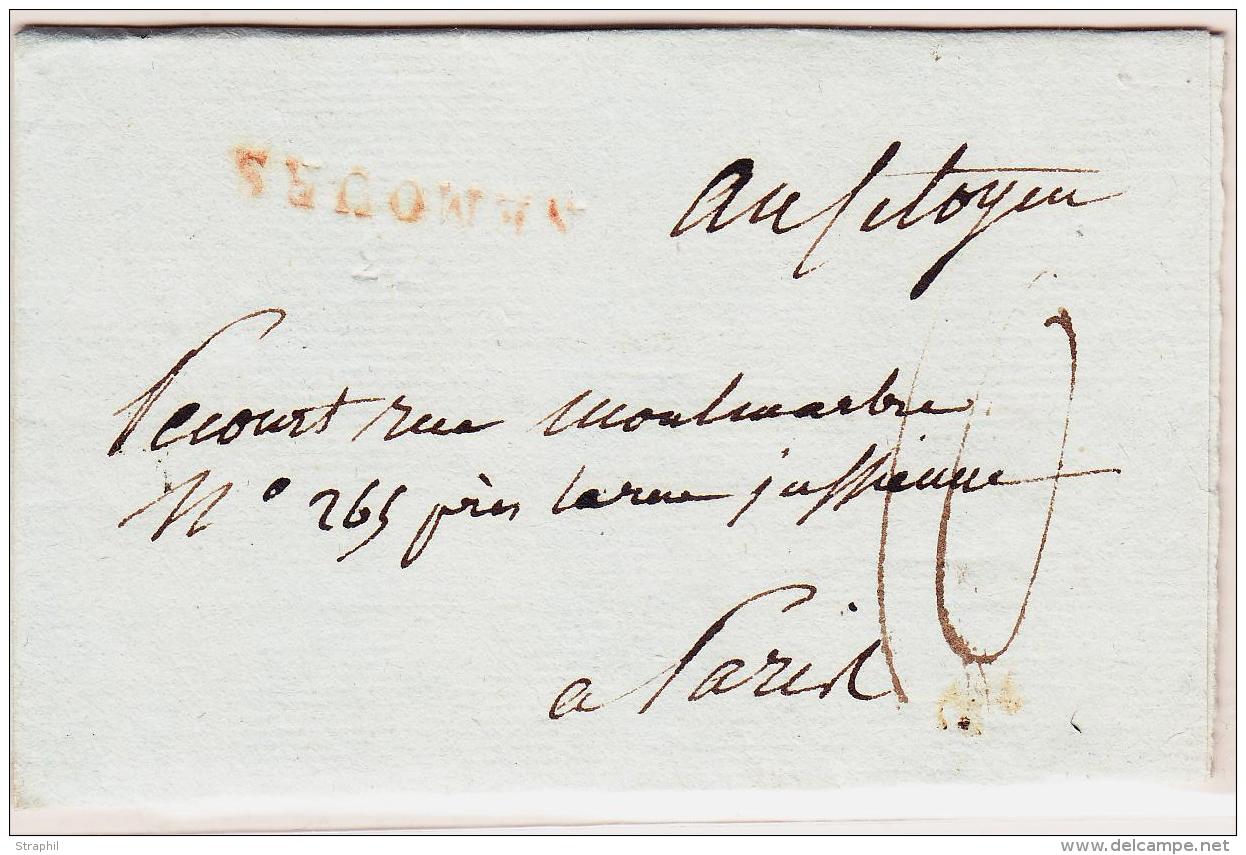 au Citoyen
Pecourt rue Montmartre
N° 265 près la rue jussienne
a Paris
10
Straphil
www.delcampe.net